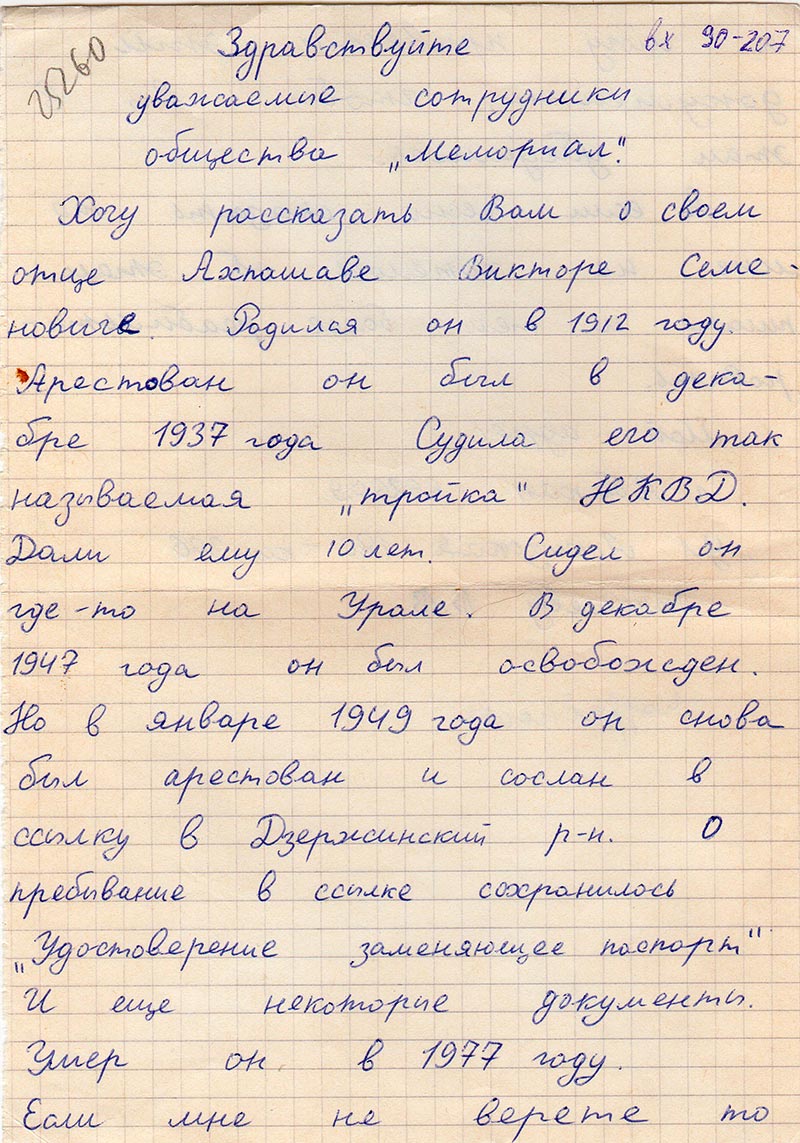 25260
Здравствуйте вх 90-207
уважаемые сотрудники
общества „Мемориал".
Хочу рассказать Вам о своем
отце Ахпашаве Викторе Семе-
новиче. Родился он в 1912 году.
Арестован он был в дека-
бре 1937 года Судила его так
называемая „тройка" НКВД.
Дали ему 10 лет. Сидел он
где-то на Урале. В декабре
1947 года он был освобожден.
Но в январе 1949 года он снова
был арестован и сослан в
ссылку в Дзержинский р-н. О
пребывание в ссылке сохранилось
„Удостоверение заменяющее паспорт"
И еще некоторые документы.
Умер он в 1977 году.
Если мне не верете то